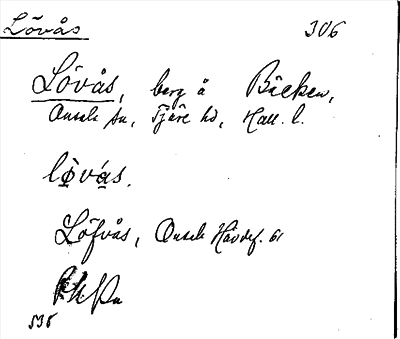 Lövås 306
Lövås, berg å Bäcken,
Onsala sn, Fjäre hd, Hall. l.
lǫ̀vá̱s.
Löfvås, Onsala Hävdef. 61
536